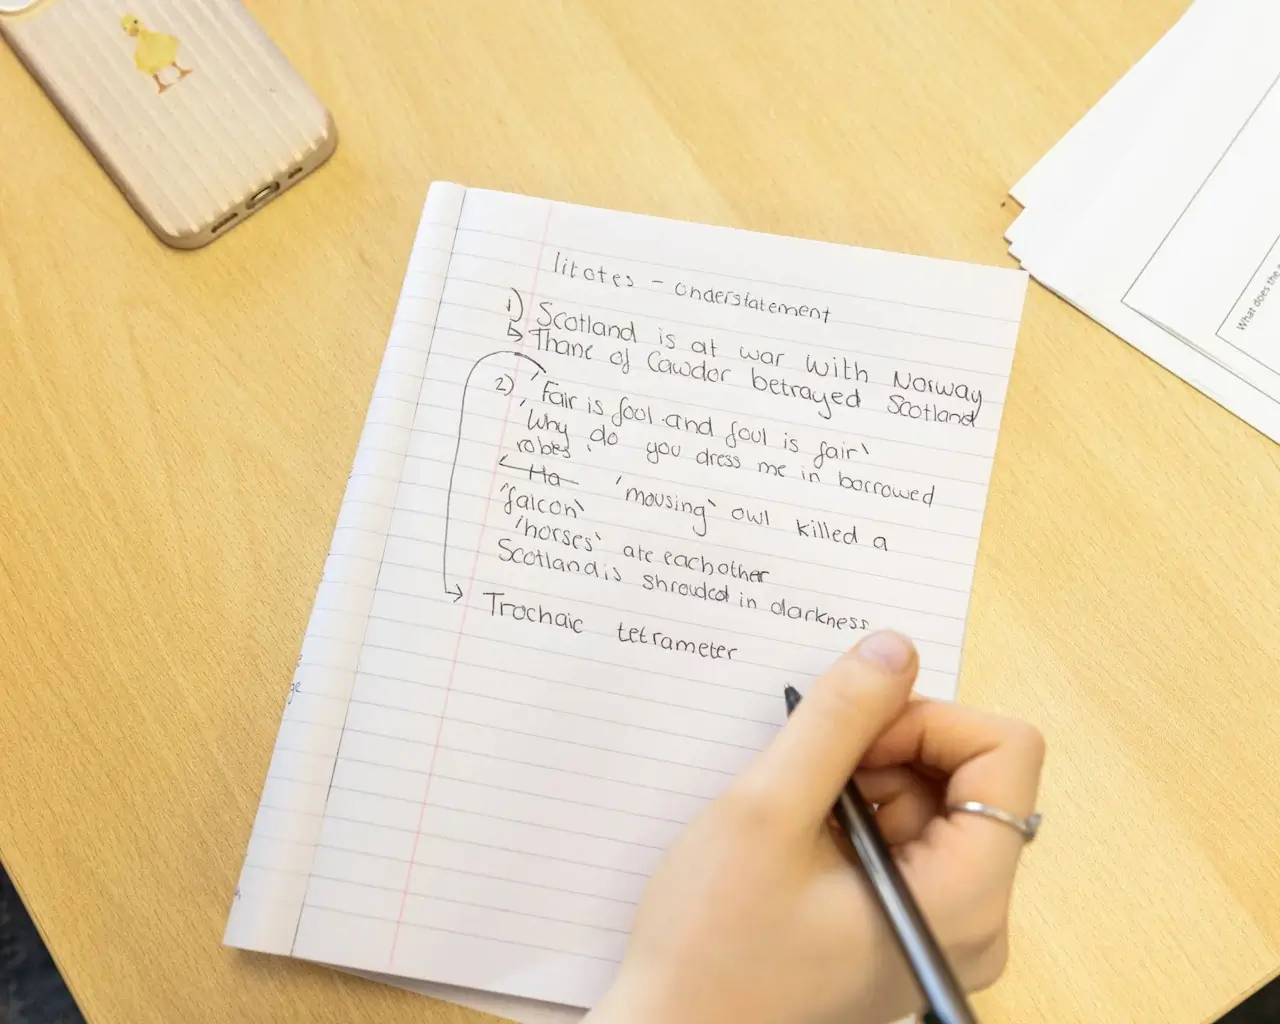 litotes - understatement
1) Scotland is at war with Norway
↳ Thane of Cawdor betrayed Scotland
2) 'Fair is foul and foul is fair'
'Why do you dress me in borrowed
robes'
Ha 'mousing' owl killed a
'falcon'
'horses' ate eachother
Scotland is shrouded in darkness
→ Trochaic tetrameter
What does the